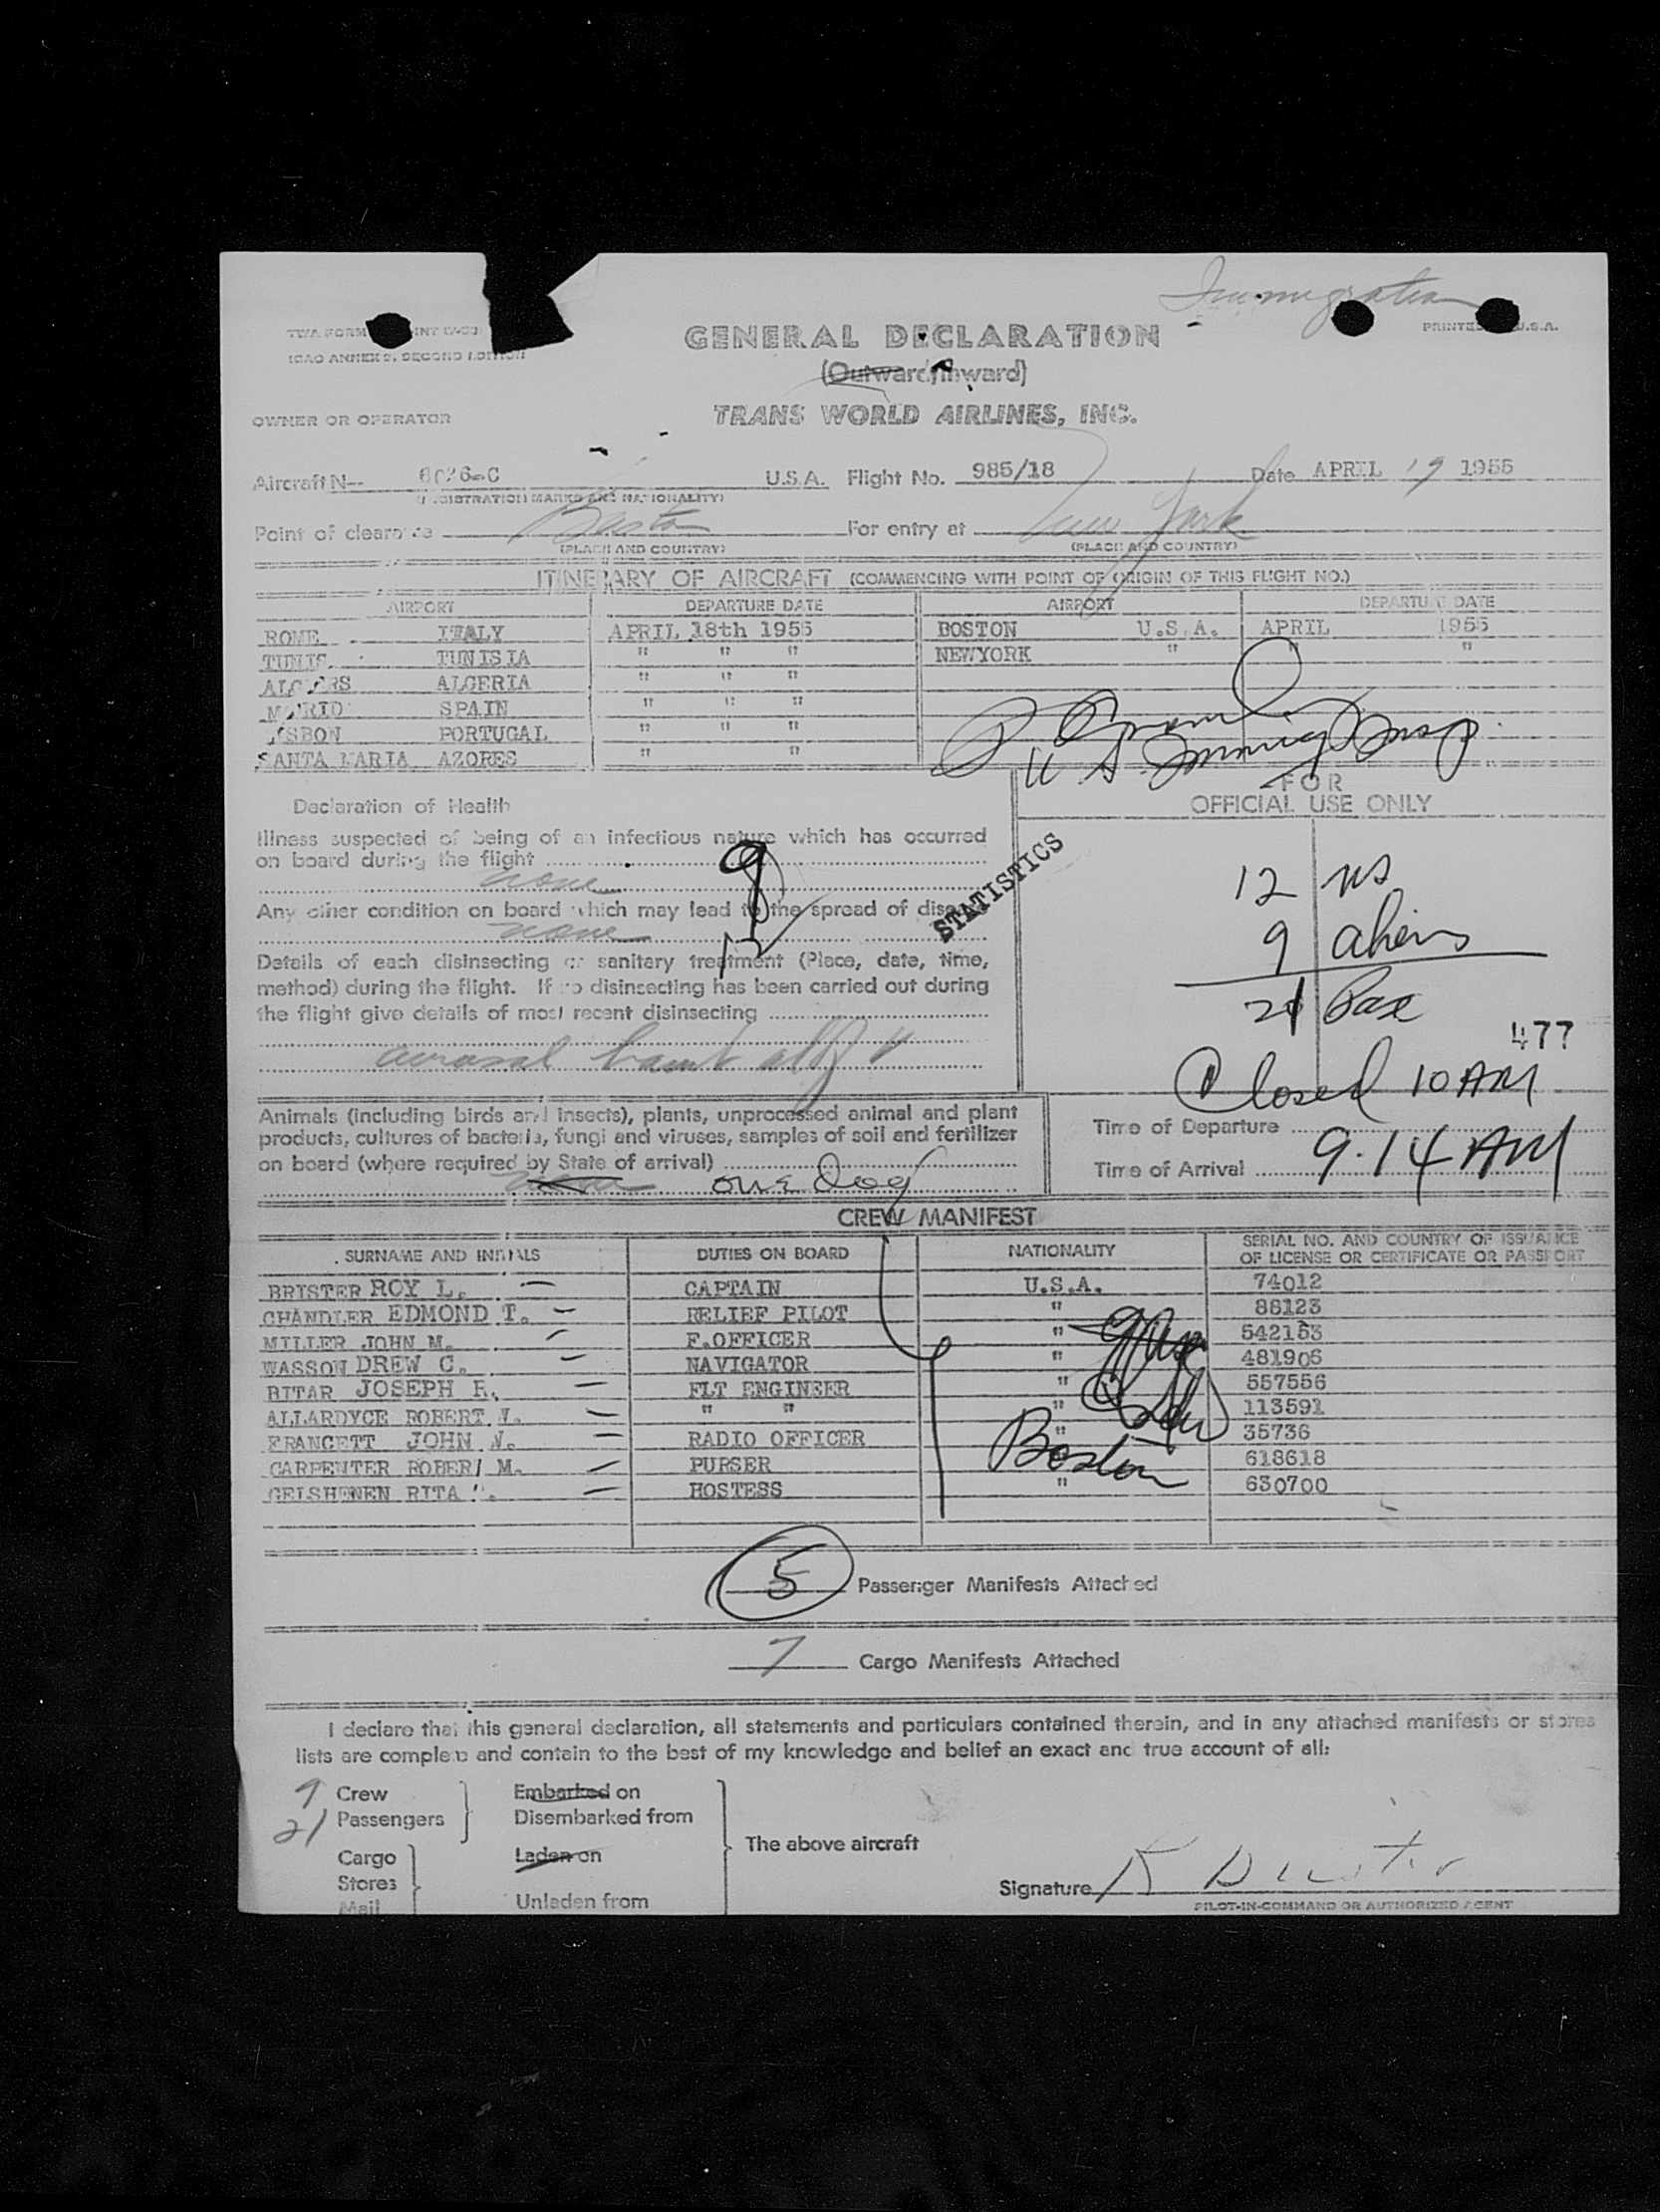 Immigration
TWA FORM
PRINTED U.S.A.
ICAO ANNEX 9, SECOND EDITION
GENERAL DECLARATION
(Outward/Inward)
OWNER OR OPERATOR TRANS WORLD AIRLINES, INC.
Aircraft N-- 6026-C U.S.A. Flight No. 985/18 Date APRIL 19 1955
(REGISTRATION MARKS AND NATIONALITY)
Point of clearance Boston For entry at New York
(PLACE AND COUNTRY) (PLACE AND COUNTRY)
ITINERARY OF AIRCRAFT (COMMENCING WITH POINT OF ORIGIN OF THIS FLIGHT NO.)
AIRPORT DEPARTURE DATE AIRPORT DEPARTURE DATE
ROME ITALY APRIL 18th 1955 BOSTON U.S.A. APRIL 1955
TUNIS TUNISIA " " " NEWYORK " " "
ALGIERS ALGERIA " " "
MADRID SPAIN " " "
LISBON PORTUGAL " " "
SANTA MARIA AZORES " "
U.S. Immig Insp.
FOR
OFFICIAL USE ONLY
Declaration of Health
Illness suspected of being of an infectious nature which has occurred
on board during the flight
none
Any other condition on board which may lead to the spread of disease
none
Details of each disinsecting or sanitary treatment (Place, date, time,
method) during the flight. If no disinsecting has been carried out during
the flight give details of most recent disinsecting
aerosol bomb
9
12
STATISTICS
12 US
9 aliens
21 Pax
477
Closed 10 AM
Animals (including birds and insects), plants, unprocessed animal and plant
products, cultures of bacteria, fungi and viruses, samples of soil and fertilizer
on board (where required by State of arrival)
none one Dog
Time of Departure
Time of Arrival 9.14 AM
CREW MANIFEST
SURNAME AND INITIALS DUTIES ON BOARD NATIONALITY SERIAL NO. AND COUNTRY OF ISSUANCE
OF LICENSE OR CERTIFICATE OR PASSPORT
BRISTER ROY L. CAPTAIN U.S.A. 74012
CHANDLER EDMOND T. RELIEF PILOT " 86123
MILLER JOHN M. F.OFFICER " 542153
WASSON DREW C. NAVIGATOR " 481906
BITAR JOSEPH F. FLT ENGINEER " 557556
ALLARDYCE ROBERT W. " " " 113591
FRANCETT JOHN W. RADIO OFFICER " 35736
CARPENTER ROBERT M. PURSER " 618618
GEISHENEN RITA HOSTESS " 630700
Boston
5 Passenger Manifests Attached
7 Cargo Manifests Attached
I declare that this general declaration, all statements and particulars contained therein, and in any attached manifests or stores
lists are complete and contain to the best of my knowledge and belief an exact and true account of all:
9 Crew Embarked on
21 Passengers Disembarked from
The above aircraft
Cargo Laden on
Stores
Mail Unladen from
Signature R Brister
PILOT-IN-COMMAND OR AUTHORIZED AGENT